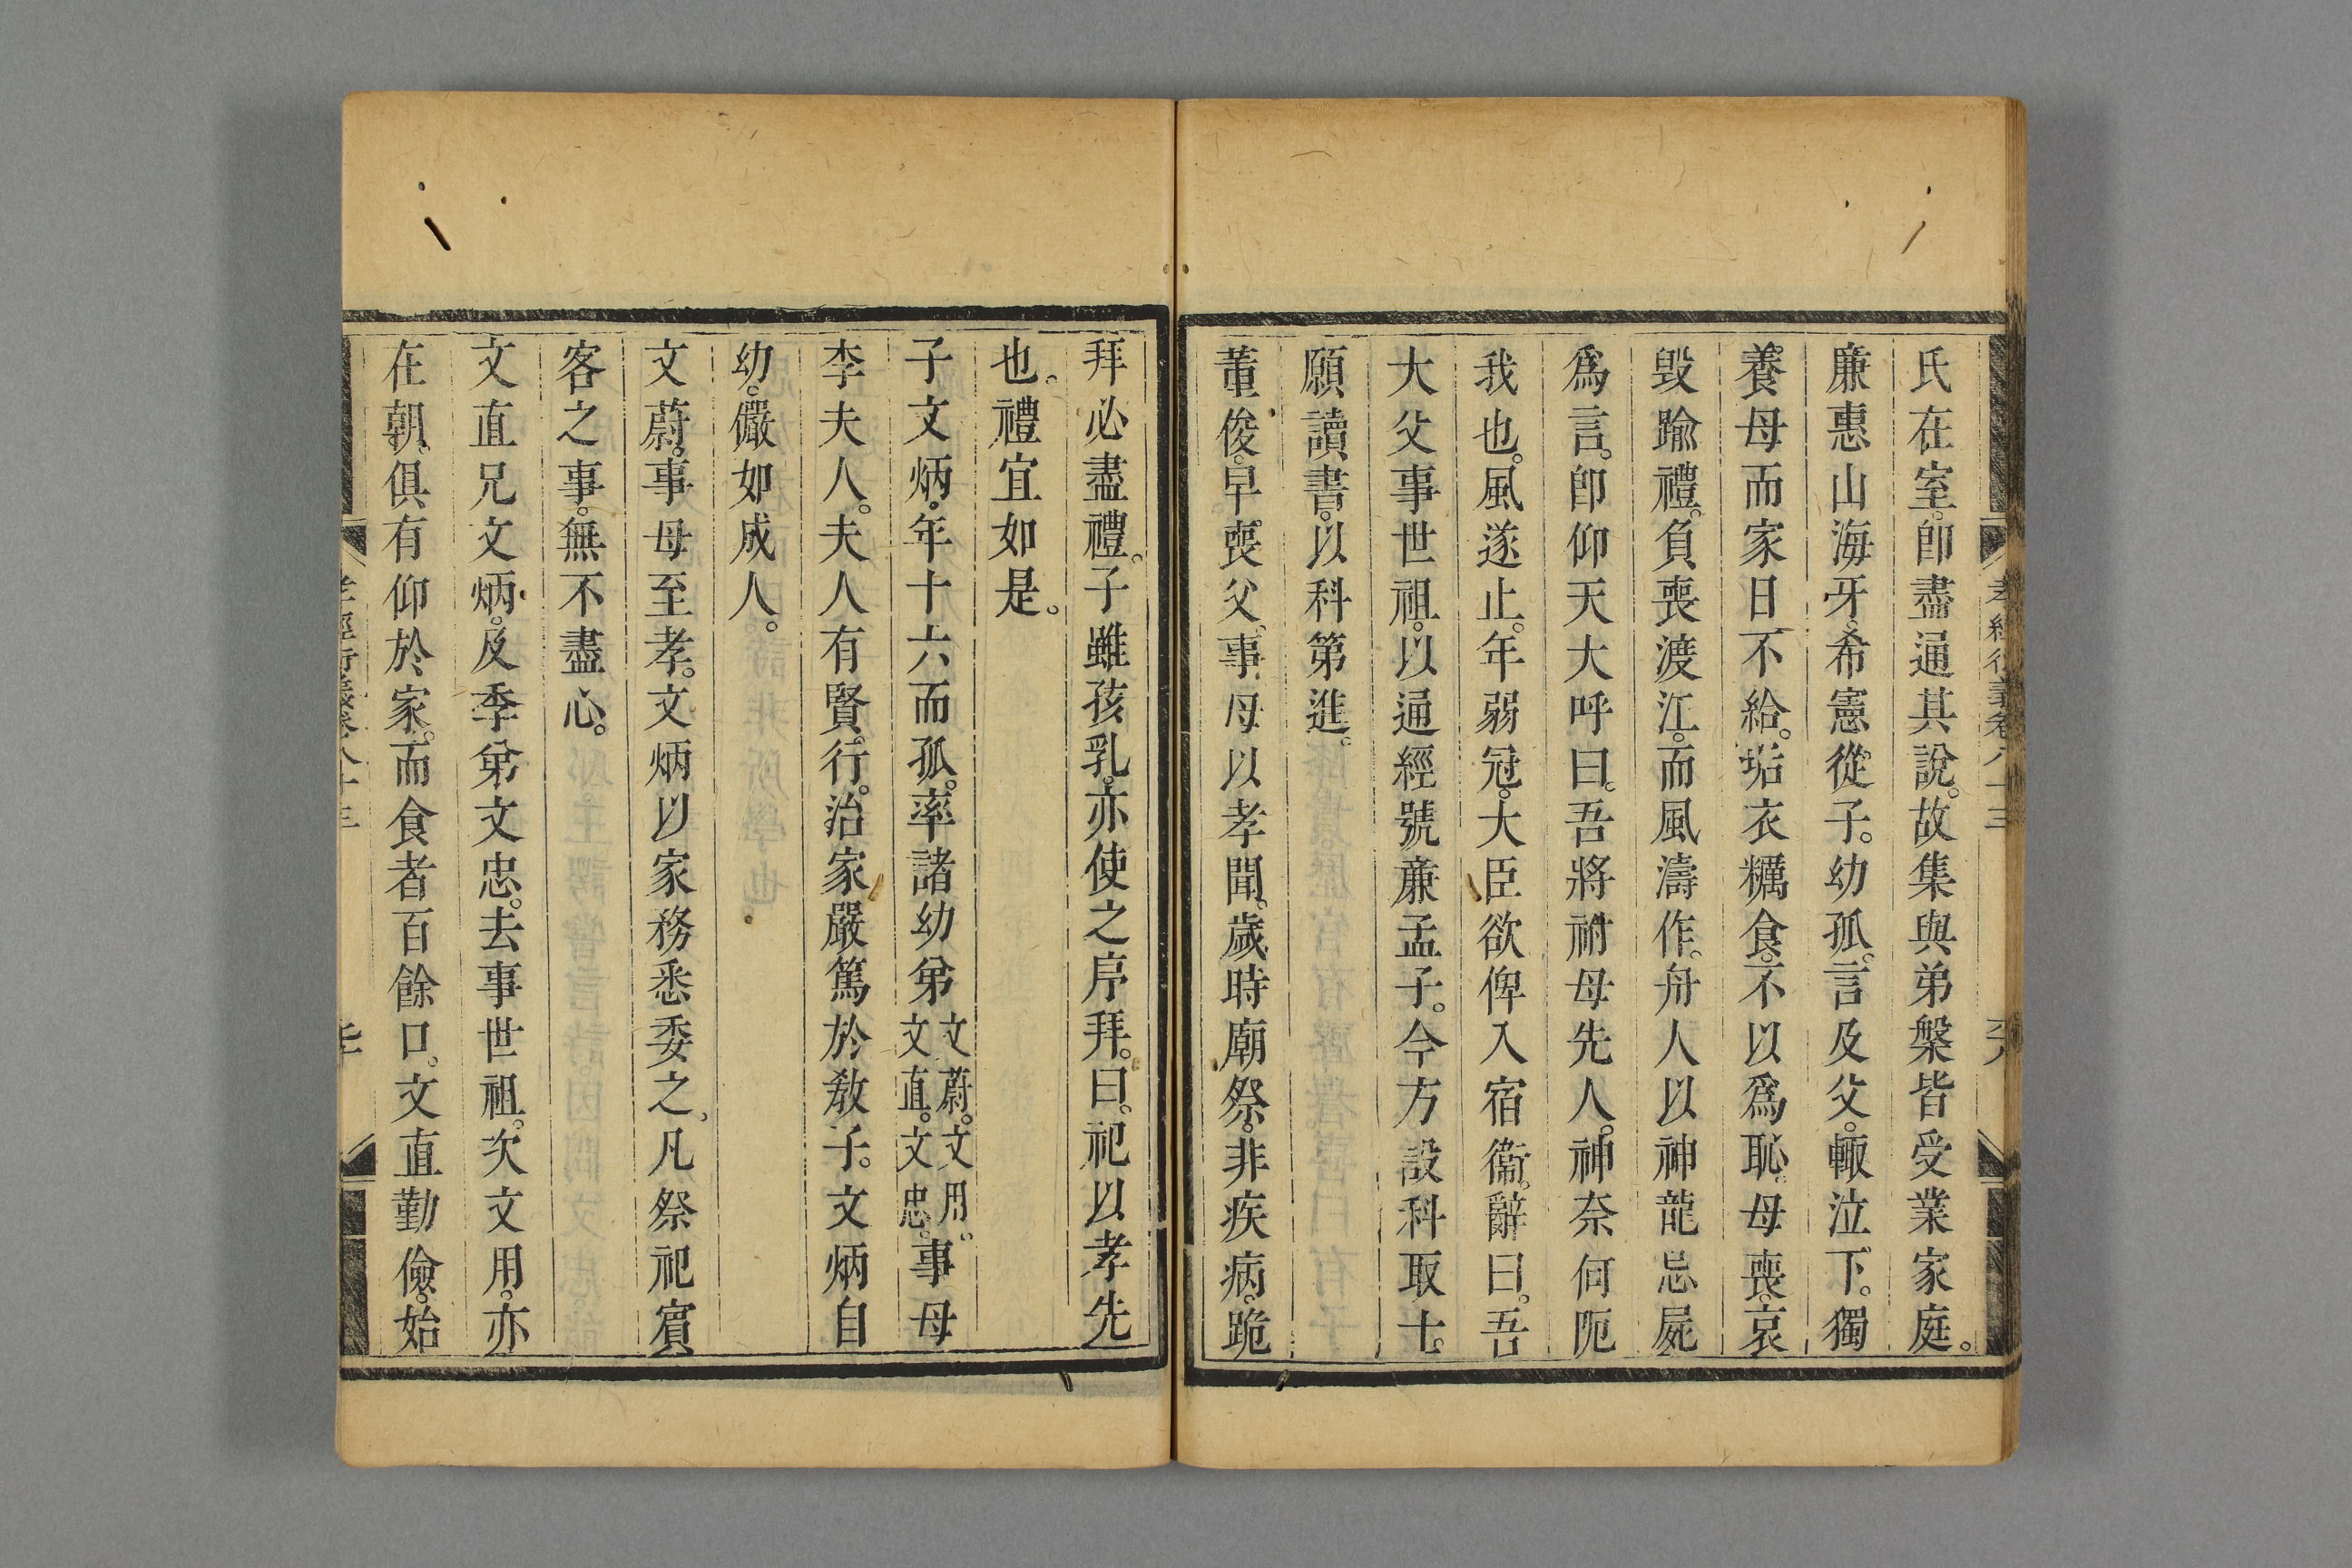 孝經衍義卷八十三
氏在室。卽盡通其說。故集與弟槃皆受業家庭。
廉惠山海牙。希憲從子。幼孤。言及父。輒泣下。獨
養母而家日不給。垢衣糲食。不以爲恥。母喪。哀
毀踰禮。負喪渡江。而風濤作。舟人以神龍忌屍
爲言。卽仰天大呼曰。吾將祔母先人。神奈何阨
我也。風遂止。年弱冠。大臣欲俾入宿衞。辭曰。吾
大父事世祖。以通經號廉孟子。今方設科取士。
願讀書。以科第進。
董俊。早喪父。事母以孝聞。歲時廟祭。非疾病。跪
拜必盡禮。子雖孩乳。亦使之序拜。曰。祀以孝先
也。禮宜如是。
子文炳。年十六而孤。率諸幼弟文蔚。文用。文直。文忠。事母
李夫人。夫人有賢行。治家嚴篤於敎子。文炳自
幼。儼如成人。
文蔚。事母至孝。文炳以家務悉委之、凡祭祀賓
客之事。無不盡心。
文直兄文炳。及季弟文忠。去事世祖。次文用。亦
在朝。俱有仰於家。而食者百餘口。文直勤儉。始
孝經衍義卷八十三